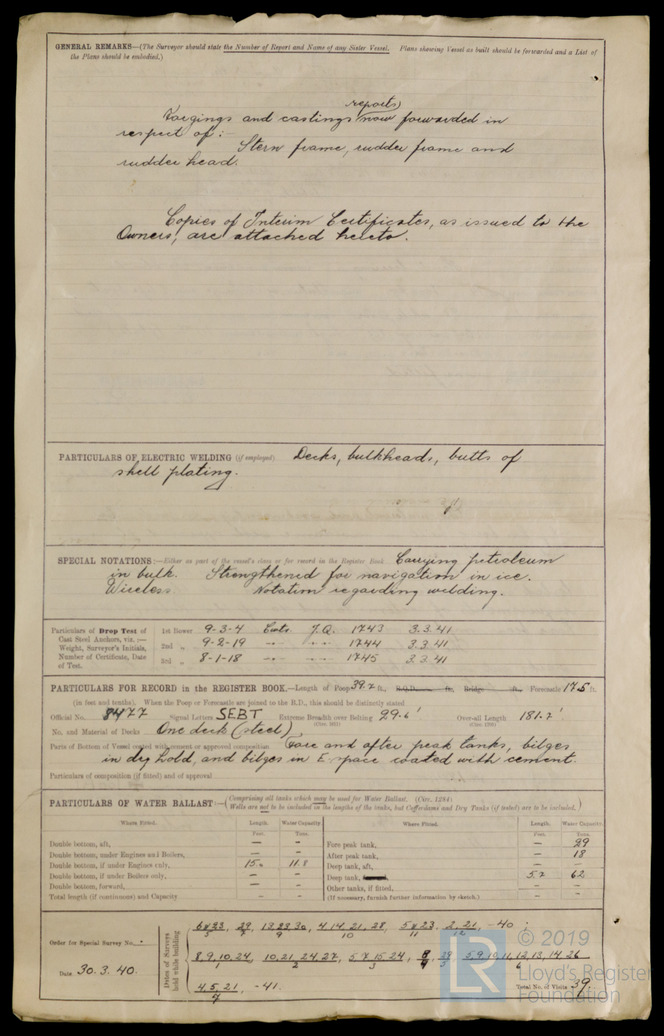 GENERAL REMARKS—(The Surveyor should state the Number of Report and Name of any Sister Vessel. Plans showing Vessel as built should be forwarded and a List of
the Plans should be embodied.)
reports
Forgings and castings now forwarded in
respect of :-
Stern frame, rudder frame and
rudder head.
Copies of Interim Certificates, as issued to the
Owners, are attached hereto.
PARTICULARS OF ELECTRIC WELDING (if employed) Decks, bulkheads, butts of
shell plating.
SPECIAL NOTATIONS:—Either as part of the vessel's class or for record in the Register Book Carrying petroleum
in bulk. Strengthened for navigation in ice.
Wireless. Notation regarding welding.
Particulars of Drop Test of Cast Steel Anchors, viz.:— Weight, Surveyor's Initials, Number of Certificate, Date of Test.
1st Bower 9-3-4 Cwts. J.Q. 1743 3.3.41
2nd „ 9-2-19 1744 3.3.41
3rd „ 8-1-18 1745 3.3.41
PARTICULARS FOR RECORD in the REGISTER BOOK.—Length of Poop 39.2 ft., R.Q.D. ft., Bridge ft., Forecastle 17.5 ft.
(in feet and tenths). When the Poop or Forecastle are joined to the B.D., this should be distinctly stated
Official No. 8477 Signal Letters SEBT Extreme Breadth over Belting 29.6' Over-all Length 181.2'
No. and Material of Decks One deck (steel)
Parts of Bottom of Vessel coated with cement or approved composition Fore and after peak tanks, bilges
in dry hold, and bilges in E. space coated with cement.
Particulars of composition (if fitted) and of approval
PARTICULARS OF WATER BALLAST—(Comprising all tanks which may be used for Water Ballast. (Circ. 1284)
Wells are not to be included in the lengths of the tanks, but Cofferdams and Dry Tanks (if tested) are to be included.)
Where Fitted. Length. Water Capacity. Where Fitted. Length. Water Capacity.
Feet. Tons. Feet. Tons.
Double bottom, aft, — — Fore peak tank, — 29
Double bottom, under Engines and Boilers, — — After peak tank, — 18
Double bottom, if under Engines only, 15.0 11.8 Deep tank, aft, — —
Double bottom, if under Boilers only, — — Deep tank, 5.2 62
Double bottom, forward, — — Other tanks, if fitted, — —
Total length (if continuous) and Capacity (If necessary, furnish further information by sketch.)
Order for Special Survey No.
Date 30.3.40.
Dates of Surveys held while building
4.14.21.28 2.21. -40
10 12
8.9.10.24, 10.21.24.27, 5.7.15.24,
1 2 3
4.5.21 -41.
7
Total No. of Visits 39.
© 2019
LR
Lloyd's Register
Foundation